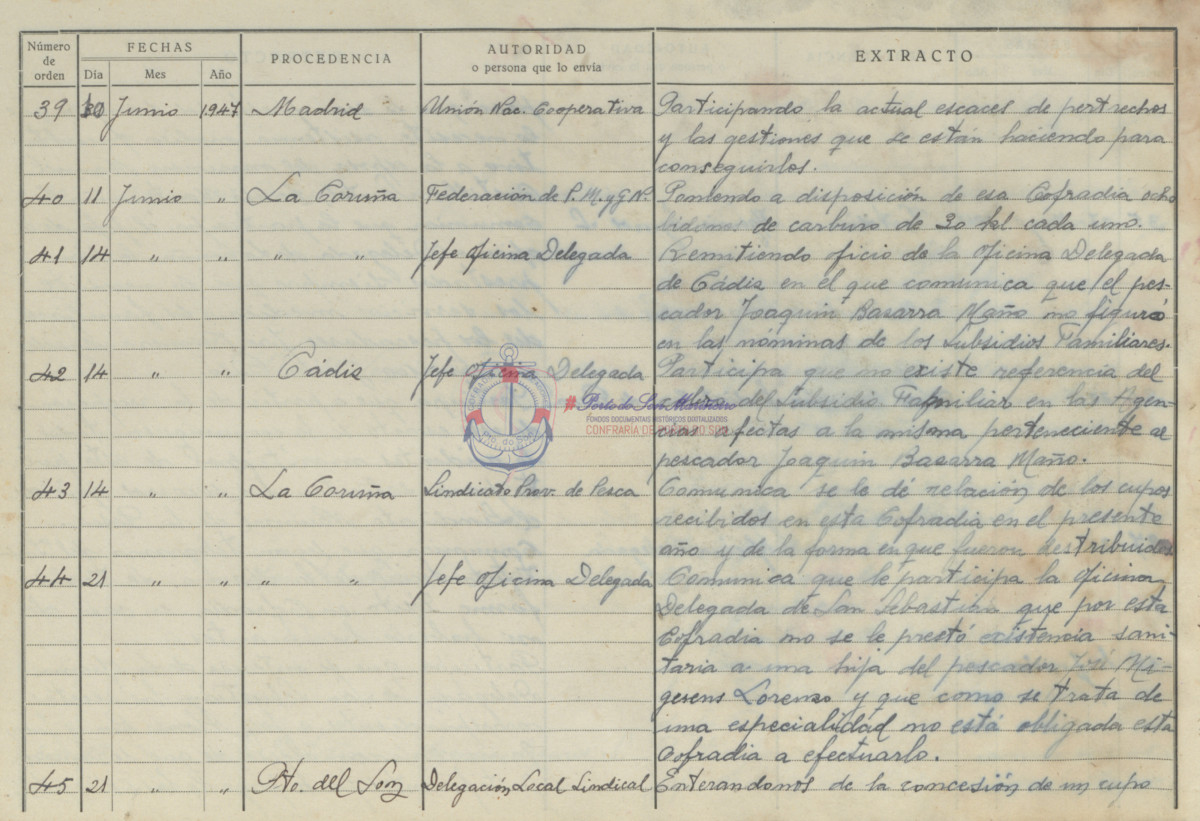 Número de orden FECHAS PROCEDENCIA AUTORIDAD o persona que lo envía EXTRACTO
Día Mes Año
39 30 Junio 1947 Madrid Unión Nac. Cooperativa Participando la actual escaces de pertrechos
y las gestiones que se están haciendo para
conseguirlos.
40 11 Junio " La Coruña Federación de P. M. y G Nº. Poniendo a disposición de esa Cofradia ocho
bidones de carburo de 30 kl cada uno.
41 14 " " " " Jefe Oficina Delegada Remitiendo oficio de la Oficina Delegada
de Cádiz en el que comunica que el pes-
cador Joaquin Basarra Maño no figuró
en las nóminas de los Subsidios Familiares.
42 14 " " Cádiz Jefe Oficina Delegada Participa que no existe referencia del
del Subsidio Familiar en las Agen-
cias afectas a la misma perteneciente al
pescador Joaquin Basarra Maño.
43 14 " " La Coruña Sindicato Prov. de Pesca Comunica se le dé relación de los cupos
recibidos en esta Cofradia en el presente
año y de la forma en que fueron destribuidos
44 21 " " " " Jefe Oficina Delegada Comunica que le participa la Oficina
Delegada de San Sebastian que por esta
Cofradia no se le preetó existencia sani-
taria a una hija del pescador José
Lorenzo y que como se trata de
una especialidad no está obligada esta
Cofradia a efectuarlo.
45 21 " " Pto. del Son Delegación Local Sindical Enterandonos de la concesión de un cupo
#Porto do Son Mariñeiro
FONDOS DOCUMENTAIS HISTÓRICOS DIXITALIZADOS
CONFRARÍA DE PORTO DO SON